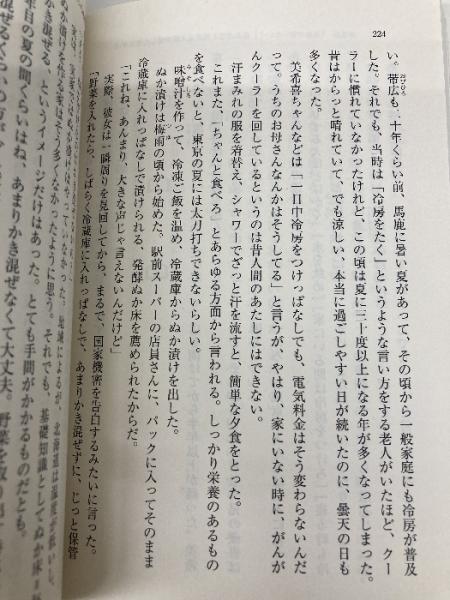 224
い。帯広も二十年くらい前、馬鹿に暑い夏があって、その頃から一般家庭にも冷房が普及
した。それでも、当時は「冷房をたく」というような言い方をする老人がいたほど、クー
ラーに慣れていなかったけれど、この頃は夏に三十度以上になる年が多くなってしまった。
昔はからっと晴れていて、でも涼しい、本当に過ごしやすい日が続いたのに、曇天の日も
多くなった。
美希喜ちゃんなどは「一日中冷房をつけっぱなしでも、電気料金はそう変わらないんだ
って。うちのお母さんなんかはそうしてる」と言うが、やはり、家にいない時に、がんが
んクーラーを回しているというのは昔人間のあたしにはできない。
汗まみれの服を着替え、シャワーでざっと汗を流すと、簡単な夕食をとった。
これまた、「ちゃんと食べろ」とあらゆる方面から言われる。しっかり栄養のあるもの
を食べないと、東京の夏には太刀打ちできないらしい。
味噌汁を作って、冷凍ご飯を温め、冷蔵庫からぬか漬けを出した。
ぬか漬けは梅雨の頃から始めた。駅前スーパーの店員さんに、パックに入ってそのまま
冷蔵庫に入れっぱなしで漬けられる、発酵ぬか床を薦められたからだ。
「これね、あんまり、大きな声じゃ言えないんだけど」
実際、彼女は一瞬周りを見回してから、まるで、国家機密を告白するみたいに言った。
「野菜を入れたら、しばらく冷蔵庫に入れっぱなしで、あまりかき混ぜずに、じっと保管
ぬか漬けを作る家はそう多くなかったように思う。それでも、基礎知識としてぬか床=
かき混ぜる、というイメージだけはあった。とても手間がかかるものだとも。
年目の夏の間くらいはね、あまりかき混ぜなくて大丈夫。野菜を取り出し